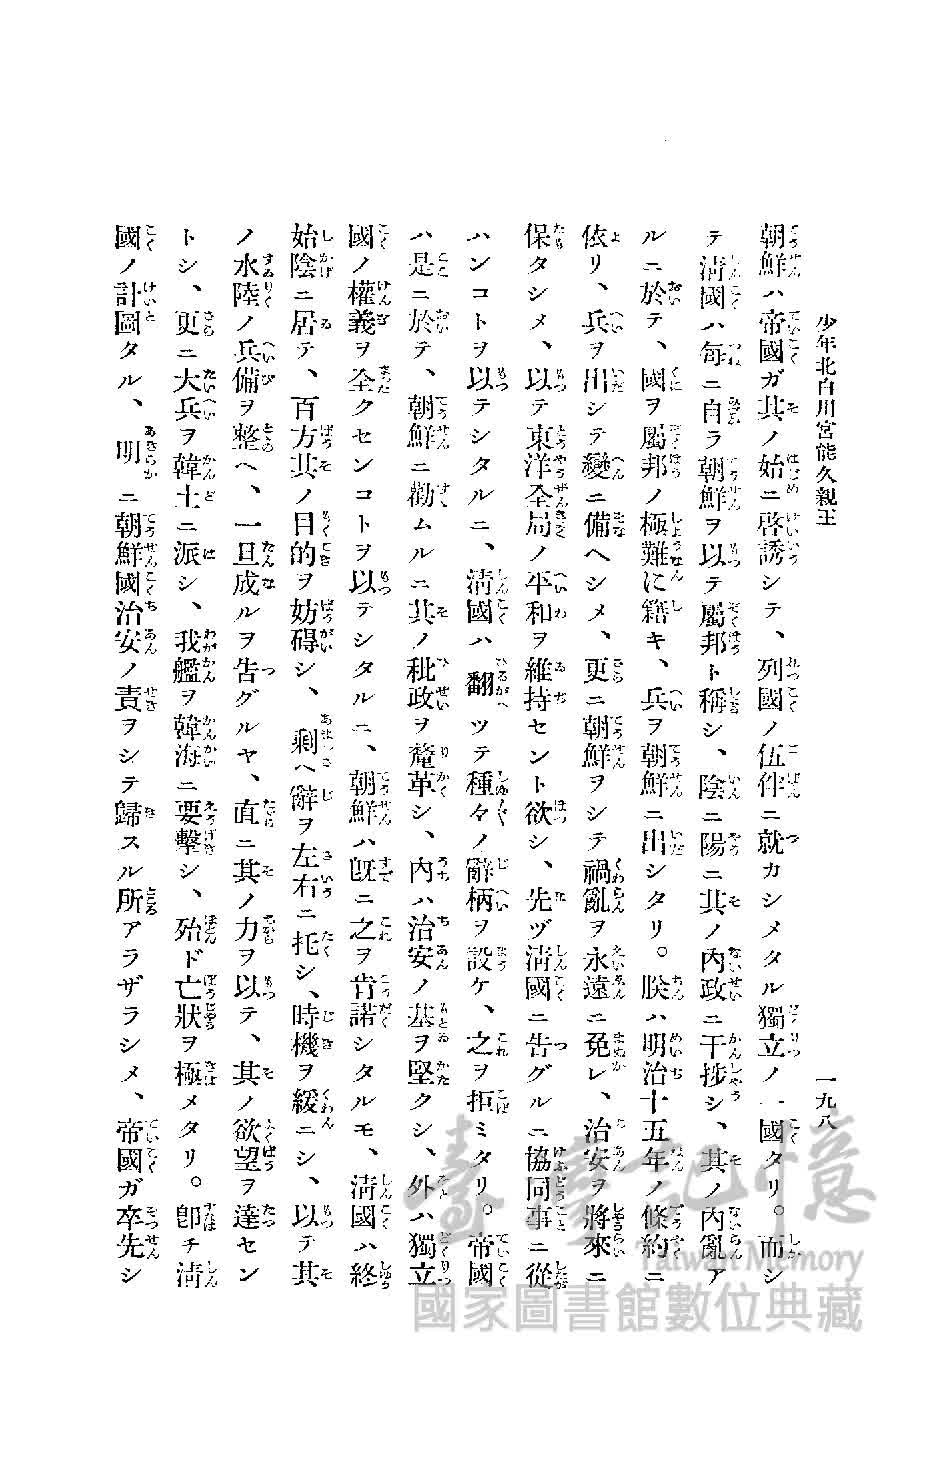 少年北白川宮能久親王
一九八
朝鮮ハ帝國ガ其ノ始ニ啓誘シテ、列國ノ伍伴ニ就カシメタル獨立ノ一國タリ。而シ
テ淸國ハ每ニ自ラ朝鮮ヲ以テ屬邦ト稱シ、陰ニ陽ニ其ノ內政ニ干捗シ、其ノ內亂ア
ルニ於テ、國ヲ屬邦ノ極難に籍キ、兵ヲ朝鮮ニ出シタリ。朕ハ明治十五年ノ條約ニ
依リ、兵ヲ出シテ變ニ備ヘシメ、更ニ朝鮮ヲシテ禍亂ヲ永遠ニ免レ、治安ヲ將來ニ
保タシメ、以テ東洋全局ノ平和ヲ維持セント欲シ、先ヅ淸國ニ告グルニ協同事ニ從
ハンコトヲ以テシタルニ、淸國ハ翻ツテ種々ノ辭柄ヲ設ケ、之ヲ拒ミタリ。帝國
ハ是ニ於テ、朝鮮ニ勸ムルニ其ノ秕政ヲ釐革シ、內ハ治安ノ基ヲ堅クシ、外ハ獨立
國ノ權義ヲ全クセンコトヲ以テシタルニ、朝鮮ハ旣ニ之ヲ肯諾シタルモ、淸國ハ終
始陰ニ居テ、百方其ノ目的ヲ妨碍シ、剩ヘ辭ヲ左右ニ托シ、時機ヲ緩ニシ、以テ其
ノ水陸ノ兵備ヲ整ヘ、一旦成ルヲ告グルヤ、直ニ其ノ力ヲ以テ、其ノ欲望ヲ達セン
トシ、更ニ大兵ヲ韓土ニ派シ、我艦ヲ韓海ニ要擊シ、殆ド亡狀ヲ極メタリ。卽チ淸
國ノ計圖タル、明ニ朝鮮國治安ノ責ヲシテ歸スル所アラザラシメ、帝國ガ卒先シ
臺灣記憶
Taiwan Memory
國家圖書館數位典藏